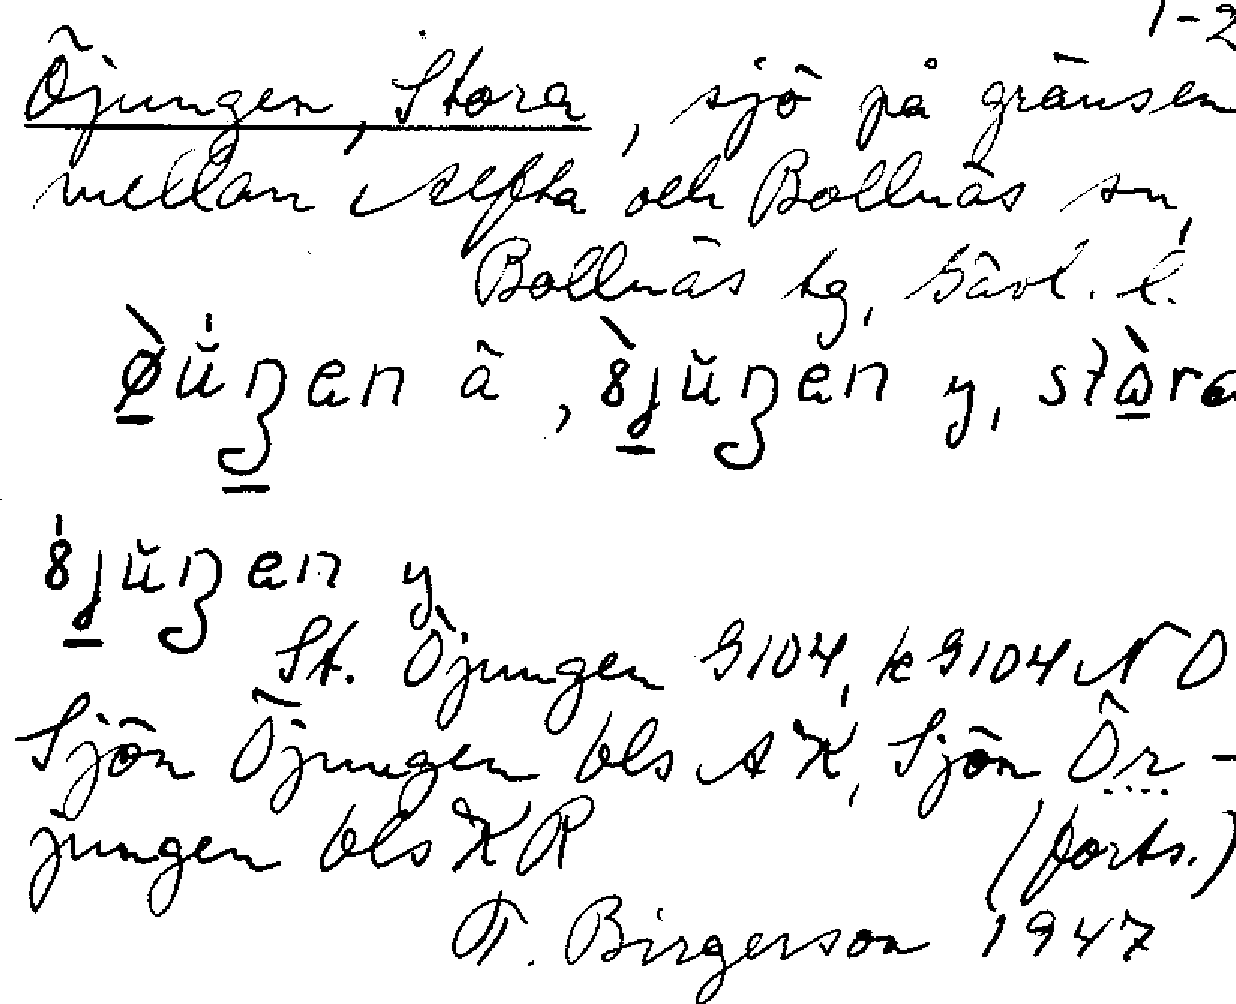 1-2
Öjungen, Stora, sjö på gränsen
mellan Alfta och Bollnäs sn,
Bollnäs tg, Gävl. l.
ä, y,
y
St. Öjungen G104, kG104 NO
Sjön Öjungen bls AX, Sjön Ör-
jungen bls XR (forts.)
F. Birgerson 1947